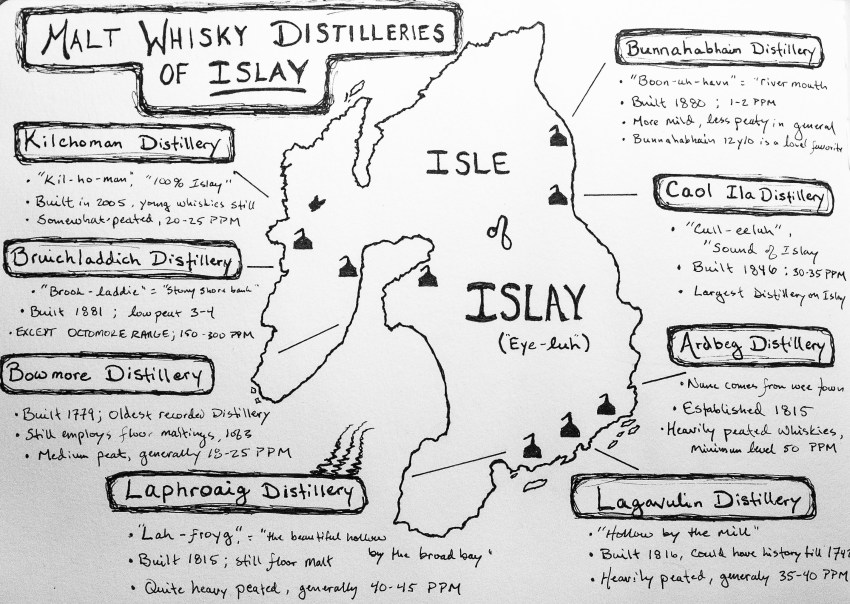 MALT WHISKY DISTILLERIES
OF ISLAY
Kilchoman Distillery
• "Kil-ho-man", "100% Islay"
• Built in 2005, young whiskies still
• Somewhat peated, 20-25 PPM
Bruichladdich Distillery
• "Brook-laddie" = "Stony shore bank"
• Built 1881 ; low peat 3-4
• EXCEPT OCTOMORE RANGE; 150-300 PPM
Bowmore Distillery
• Built 1779; Oldest recorded Distillery
• Still employs floor maltings,
• Medium peat, generally 18-25 PPM
Laphroaig Distillery
• "Lah-froyg", = "the beautiful hollow
by the broad bay"
• Built 1815; still floor malt
• Quite heavy peated, generally 40-45 PPM
ISLE
of
ISLAY
("Eye-luh")
Bunnahabhain Distillery
• "Boon-uh-havn" = "river mouth
• Built 1880 ; 1-2 PPM
• More mild, less peaty in general
• Bunnahabhain 12 y/o is a favorite
Caol Ila Distillery
• "Cull-eeluh",
"Sound of Islay
• Built 1846 ; 30-35 PPM
• Largest Distillery on Islay
Ardbeg Distillery
• Name comes from wee town
• Established 1815
• Heavily peated whiskies,
minimum level 50 PPM
Lagavulin Distillery
• "Hollow by the mill"
• Built 1816, could have history till 1742
• Heavily peated, generaly 35-40 PPM